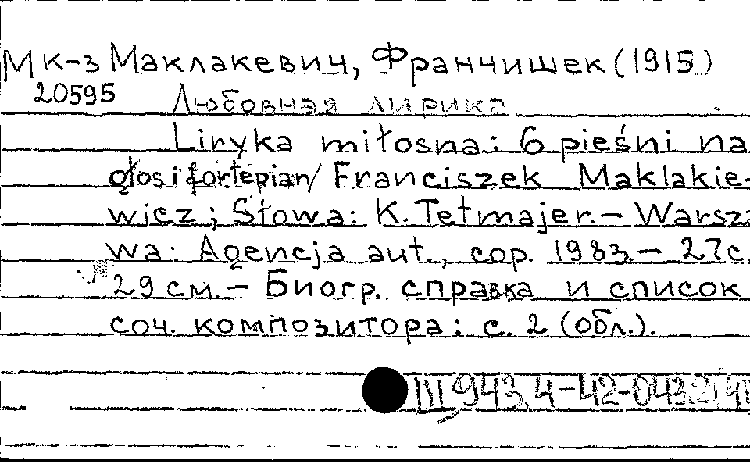 Мк-з Маклакевич, Франчишек (1915)
20595 Любовная лирика
Liryka miłosna: 6 pieśni na
głos i fortepian/ Franciszek Maklakie-
wicz; Słowa: K. Tetmajer.- Warsza
wa: Agencja aut., cop. 1983.- 27с.
29 см.- Биогр. справка и список
соч. композитора: с. 2 (обл.).